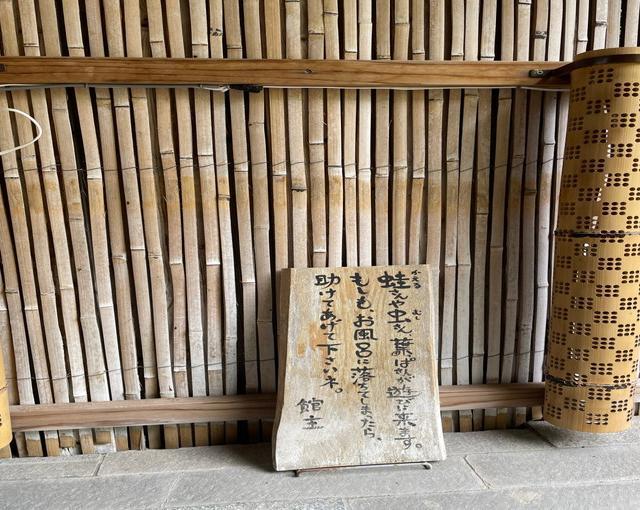 かえる むし
蛙さんや虫さん、葉っぱが遊びに来ます。
もしも、お風呂に落ちてしまったら、
助けてあげて下さいネ。
館主